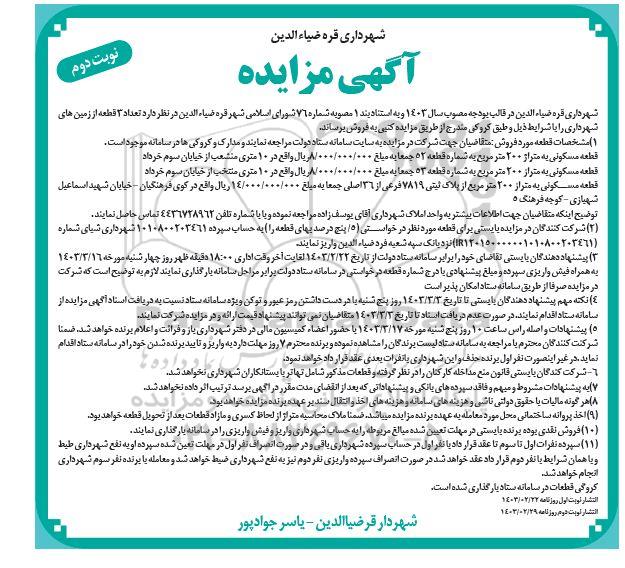 شهرداری قره ضیاء الدین
نوبت دوم
آگهی مزایده
شهرداری قره ضیاء الدین در قالب بودجه مصوب سال ۱۴۰۳ و به استناد بند ۱ مصوبه شماره ۷۶ شورای اسلامی شهر قره ضیاء الدین در نظر دارد تعداد ۳ قطعه از زمین های
شهرداری را با شرایط ذیل و طبق کروکی مندرج از طریق مزایده کتبی به فروش برساند.
۱) مشخصات قطعه مورد فروش : متقاضیان جهت شرکت در مزایده به سایت سامانه ستاد دولت مراجعه نمایند و مدارک و کروکی ها در سامانه موجود است.
قطعه مسکونی به متراژ ۲۰۰ متر مربع به شماره قطعه ۵۲ جمعا به مبلغ ۸/۰۰۰/۰۰۰/۰۰۰ ریال واقع در ۱۰ متری منشعب از خیابان سوم خرداد
قطعه مسکونی به متراژ ۲۰۰ متر مربع به شماره قطعه ۵۳ جمعا به مبلغ ۸/۰۰۰/۰۰۰/۰۰۰ ریال واقع در ۱۰ متری منتخب از خیابان سوم خرداد
قطعه مســکونی به متراژ ۲۰۰ متر مربع از پلاک ثبتی ۷۸۱۹ فرعی از ۱۳۶ اصلی جمعا به مبلغ ۱۴/۰۰۰/۰۰۰/۰۰۰ ریال واقع در کوی فرهنگیان – خیابان شهید اسماعیل
شهبازی – کوچه فرهنگ ۵
توضیح اینکه متقاضیان جهت اطلاعات بیشتر به واحد املاک شهرداری آقای یوسف زاده مراجعه نموده و یا با شماره تلفن ۴۴۳۶۷۲۸۹۶۲ تماس حاصل نمایند.
۲) شرکت کنندگان در مزایده بایستی برای قطعه مورد نظر در خواستــی (۵٪ پنج درصد بهای قطعه را) به حساب سپرده ۱۰۱۰۸۰۰۲۰۳۴۶۱ شهرداری شبای شماره
نزد بانک سپه شعبه فرد ضیاء الدین واریز نمایند.
۳) پیشنهاد دهندگان بایستی تقاضای خود را برابر سامانه ستاد دولت از تاریخ ۱۴۰۳/۲/۲۲ لغایت آخر وقت اداری ۱۸:۰۰ دقیقه ظهر روز چهار شنبه مورخه ۱۴۰۳/۳/۱۶
به همراه فیش واریزی سپرده و مبلغ پیشنهادی با درج شماره قطعه درخواستی در سامانه ستاد دولت برابر مراحل سامانه بارگذاری نمایند لازم به توضیح است که شرکت
در مزایده صرفا از طریق سامانه ستاد امکان پذیر است
۴) نکته مهم پیشنهاد دهندگان بایستی تا تاریخ ۱۴۰۳/۳/۳ روز پنج شنبه با در دست داشتن رمز عبور و توکن ویژه سامانه ستاد نسبت به دریافت اسناد آگهی مزایده از
سامانه ستاد اقدام نمایند، در صورت عدم دریافت اسناد تا تاریخ ۱۴۰۳/۳/۳ متقاضیان نمی توانند پیشنهاد قیمت ارائه و در مزایده شرکت نمایند.
۵) پیشنهادات واصله راس ساعت ۱۰ روز پنج شنبه مورخه ۱۴۰۳/۳/۱۷ با حضور اعضاء کمیسیون مالی در دفتر شهرداری باز و قرائت و اعلام برنده خواهد شد. ضمنا
شرکت کنندگان محترم با مراجعه به سامانه ستاد لیست برندگان را مشاهده نموده و برنده محترم ۷ روز مهلت دارد به واریز و تایید برنده شدن خود را در سامانه ستاد اقدام
نماید. در غیر اینصورت نفر اول برنده حذف و این شهرداری با نفرات بعدی عقد قرار داد خواهد نمود.
۶– شرکت کنندگان بایستی قانون منع مداخله کارکنان را در نظر گرفته و قطعات مذکور شامل تهاتر با بستانکاران شهرداری نخواهد شد.
۷) به پیشنهادات مشروط و مبهم و فاقد سپرده های بانکی و پیشنهاداتی که بعد از انقضای مدت مقرر در آگهی برسد ترتیب اثر داده نخواهد شد.
۸) هر گونه مالیات یا حقوق دولتی ناشی و هزینه های سامانه و هزینه های اخذ و انتقال سند بر عهده برنده مزایده خواهد بود.
۹) اخذ پروانه ساختمانی محل مورد معامله به عهده برنده مزایده میباشد. ضمنا ملاک محاسبه متراژ از لحاظ کسری و مازاد قطعات بعد از تحویل قطعه خواهد بود.
۱۰) فروش نقدی بوده برنده بایستی در مهلت تعیین شده مبالغ مربوطه را به حساب شهرداری واریز و فیش واریزی را در سامانه بارگذاری نمایند.
۱۱) سپرده نفرات اول تا سوم تا عقد قرار داد با نفر اول در حساب سپرده شهرداری باقی و در صورت انصراف نفر اول در مهلت تعین شده سپرده او به نفع شهرداری ظبط
و با همان شرایط با نفر دوم قرار داد عقد خواهد شد در صورت انصراف سپرده واریزی نفر دوم نیز به نفع شهرداری ضبط خواهد شد و معامله با برنده نفر سوم شهرداری
انجام خواهد شد.
کروگی قطعات در سامانه ستاد بارگذاری شده است.
انتشار نوبت اول روزنامه ۱۴۰۳/۰۲/۲۲
انتشار نوبت دوم روزنامه ۱۴۰۳/۰۲/۲۹
شهردار قرضیاالدین – یاسر جوادپور